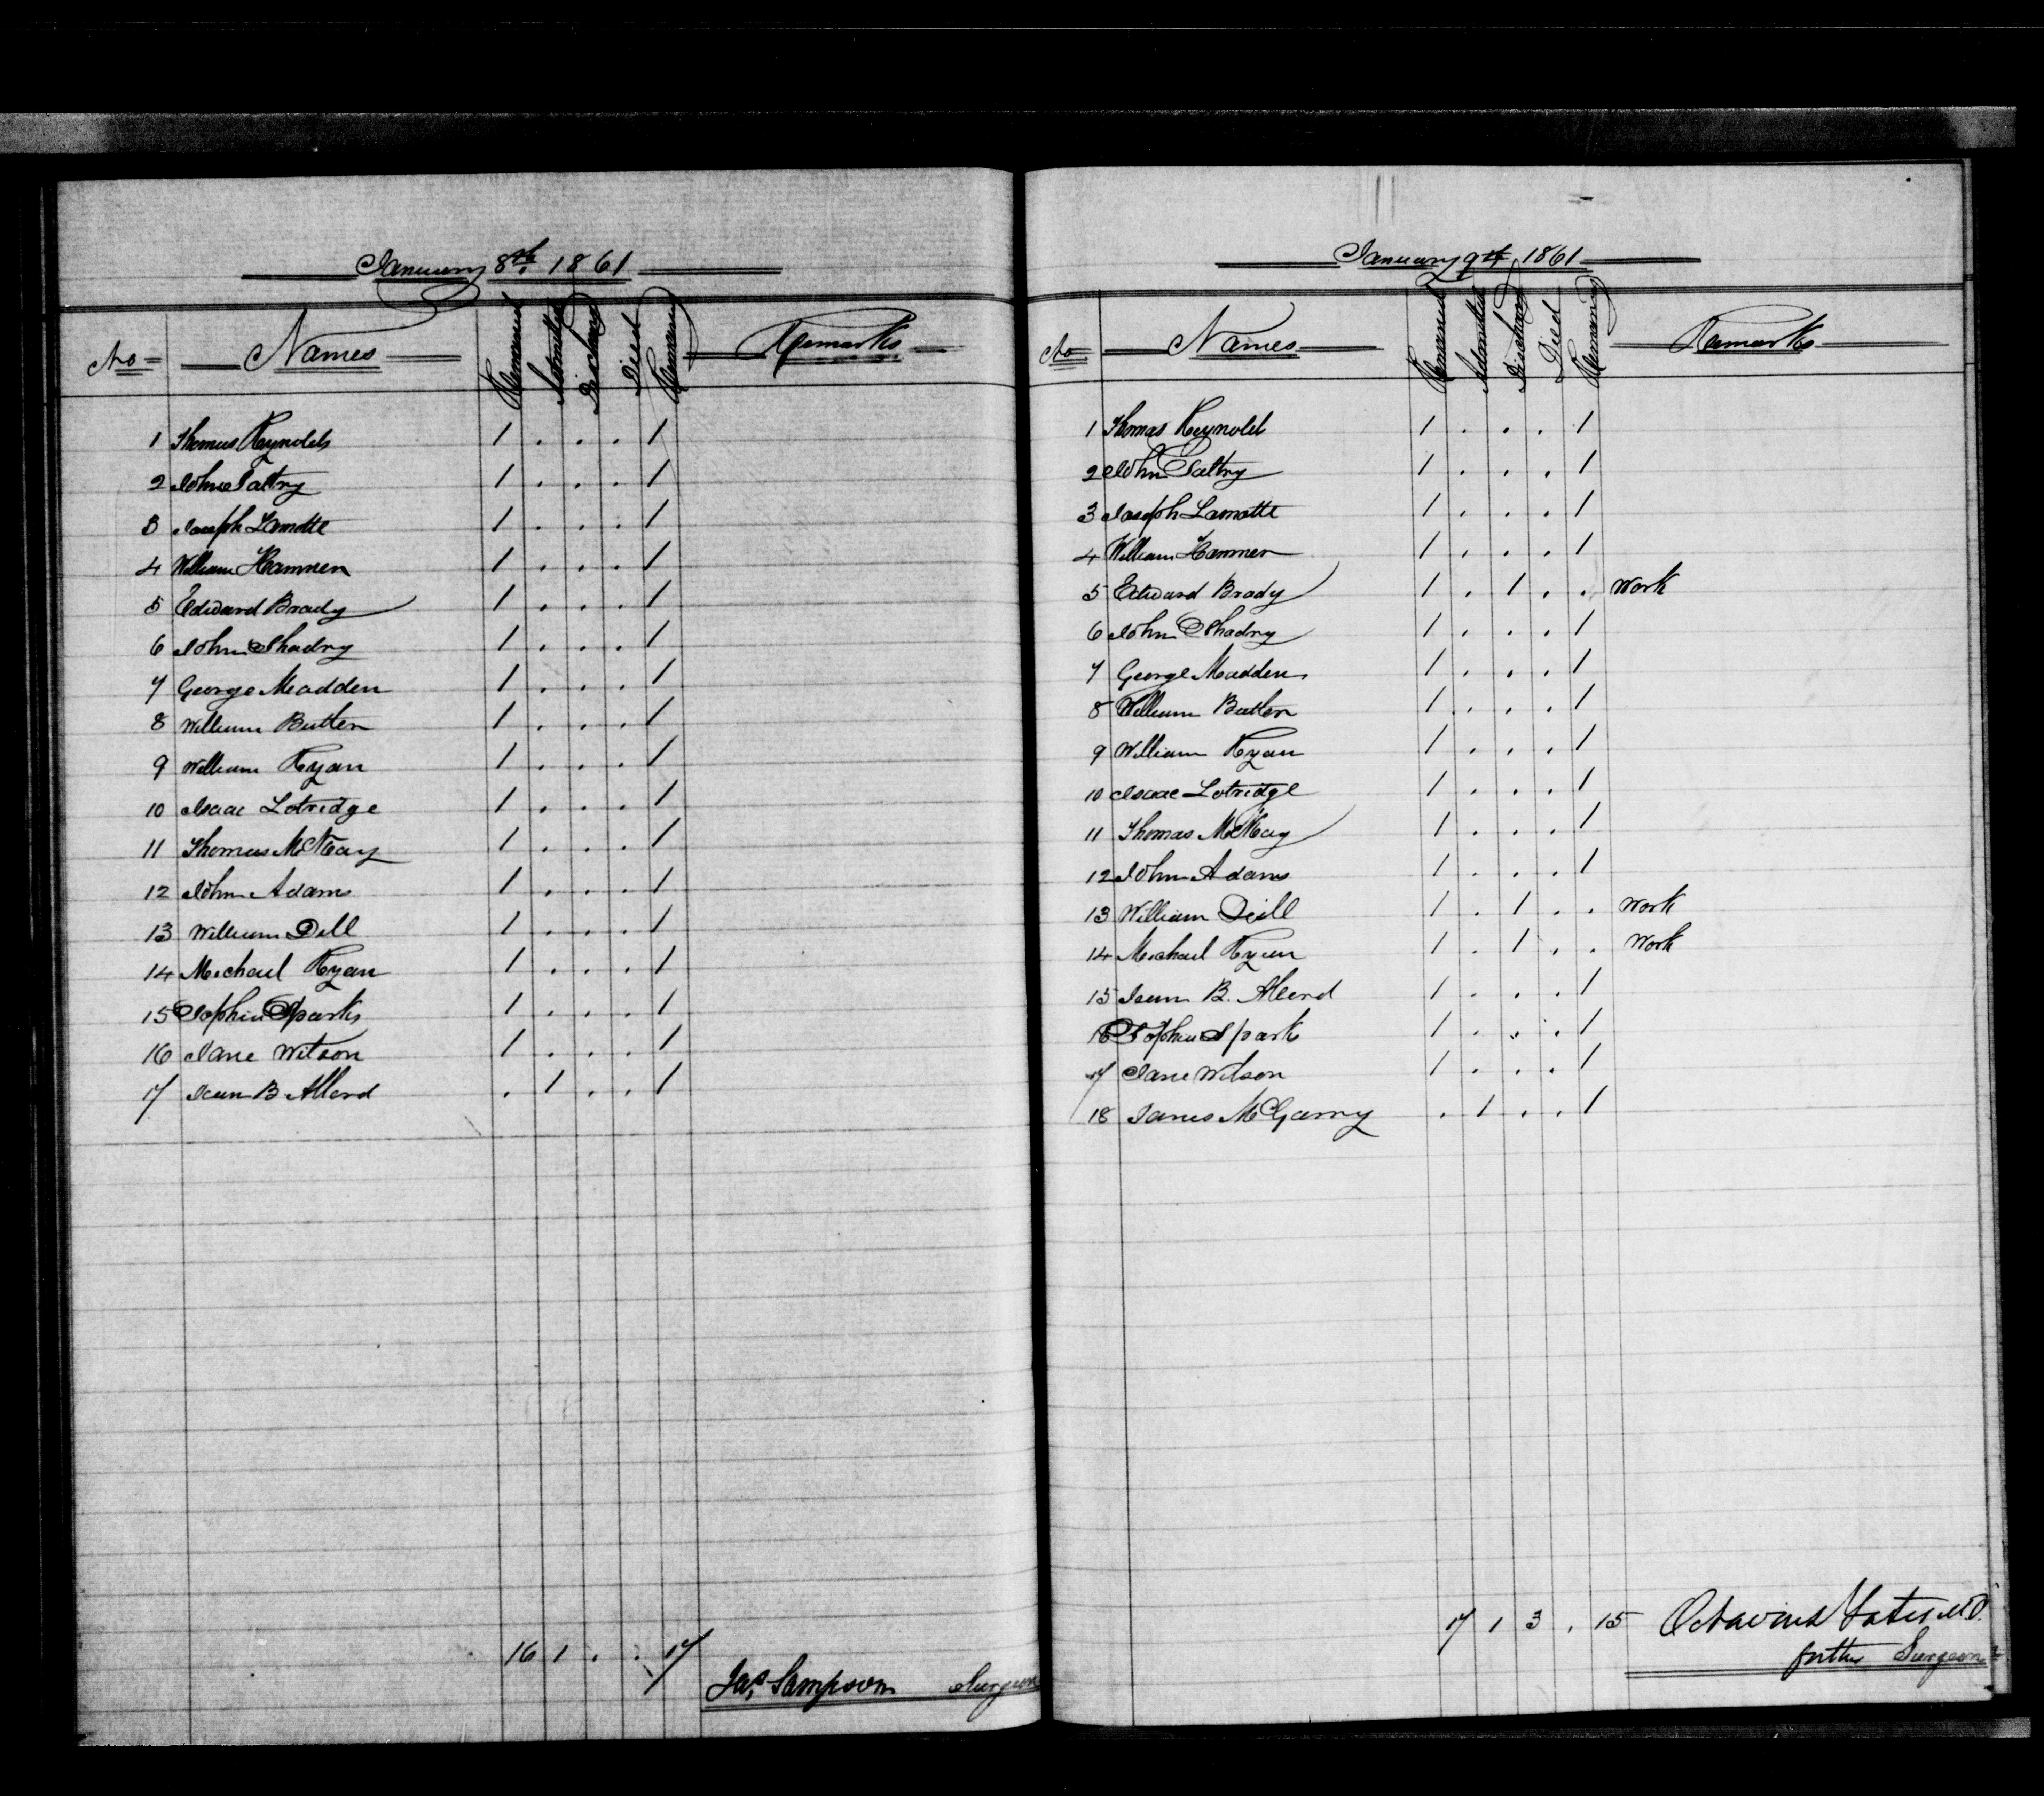 January 8th 1861
No Names Remained Admitted Discharged Died Remaining Remarks
1 Thomas Reynolds 1 . . . 1
2 John Saltry 1 . . . 1
3 Joseph Lamotte 1 . . . 1
4 William Hammen 1 . . . 1
5 Edward Brady 1 . . . 1
6 John Shadry 1 . . . 1
7 George Madden 1 . . . 1
8 William Butler 1 . . . 1
9 William Ryan 1 . . . 1
10 Isaac Lotridge 1 . . . 1
11 Thomas McKay 1 . . . 1
12 John Adams 1 . . . 1
13 William Dell 1 . . . 1
14 Michael Ryan 1 . . . 1
15 Sophia Sparks 1 . . . 1
16 Jane Wilson 1 . . . 1
17 Jean B. Allard . 1 . . 1
16 1 . . 17
Jas. Sampson Surgeon
January 9th 1861
No Names Remained Admitted Discharged Died Remaining Remarks
1 Thomas Reynolds 1 . . . 1
2 John Saltry 1 . . . 1
3 Joseph Lamotte 1 . . . 1
4 William Hammen 1 . . . 1
5 Edward Brady 1 . 1 . . Work
6 John Shadry 1 . . . 1
7 George Madden 1 . . . 1
8 William Butler 1 . . . 1
9 William Ryan 1 . . . 1
10 Isaac Lotridge 1 . . . 1
11 Thomas McKay 1 . . . 1
12 John Adams 1 . . . 1
13 William Dell 1 . 1 . . Work
14 Michael Ryan 1 . 1 . . Work
15 Jean B. Allard 1 . . . 1
16 Sophia Spark 1 . . . 1
17 Jane Wilson 1 . . . 1
18 James McGarry . 1 . . 1
17 1 3 . 15
Octavius Yates M.D.
for the Surgeon